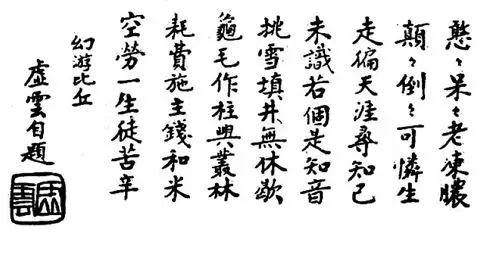 憨々呆々老凍膿
顛々倒々可憐生
走徧天涯尋知己
未識若個是知音
挑雪填井無休歇
龜毛作柱興叢林
耗費施主錢和米
空勞一生徒苦辛
幻游比丘
虛雲自題
虛雲